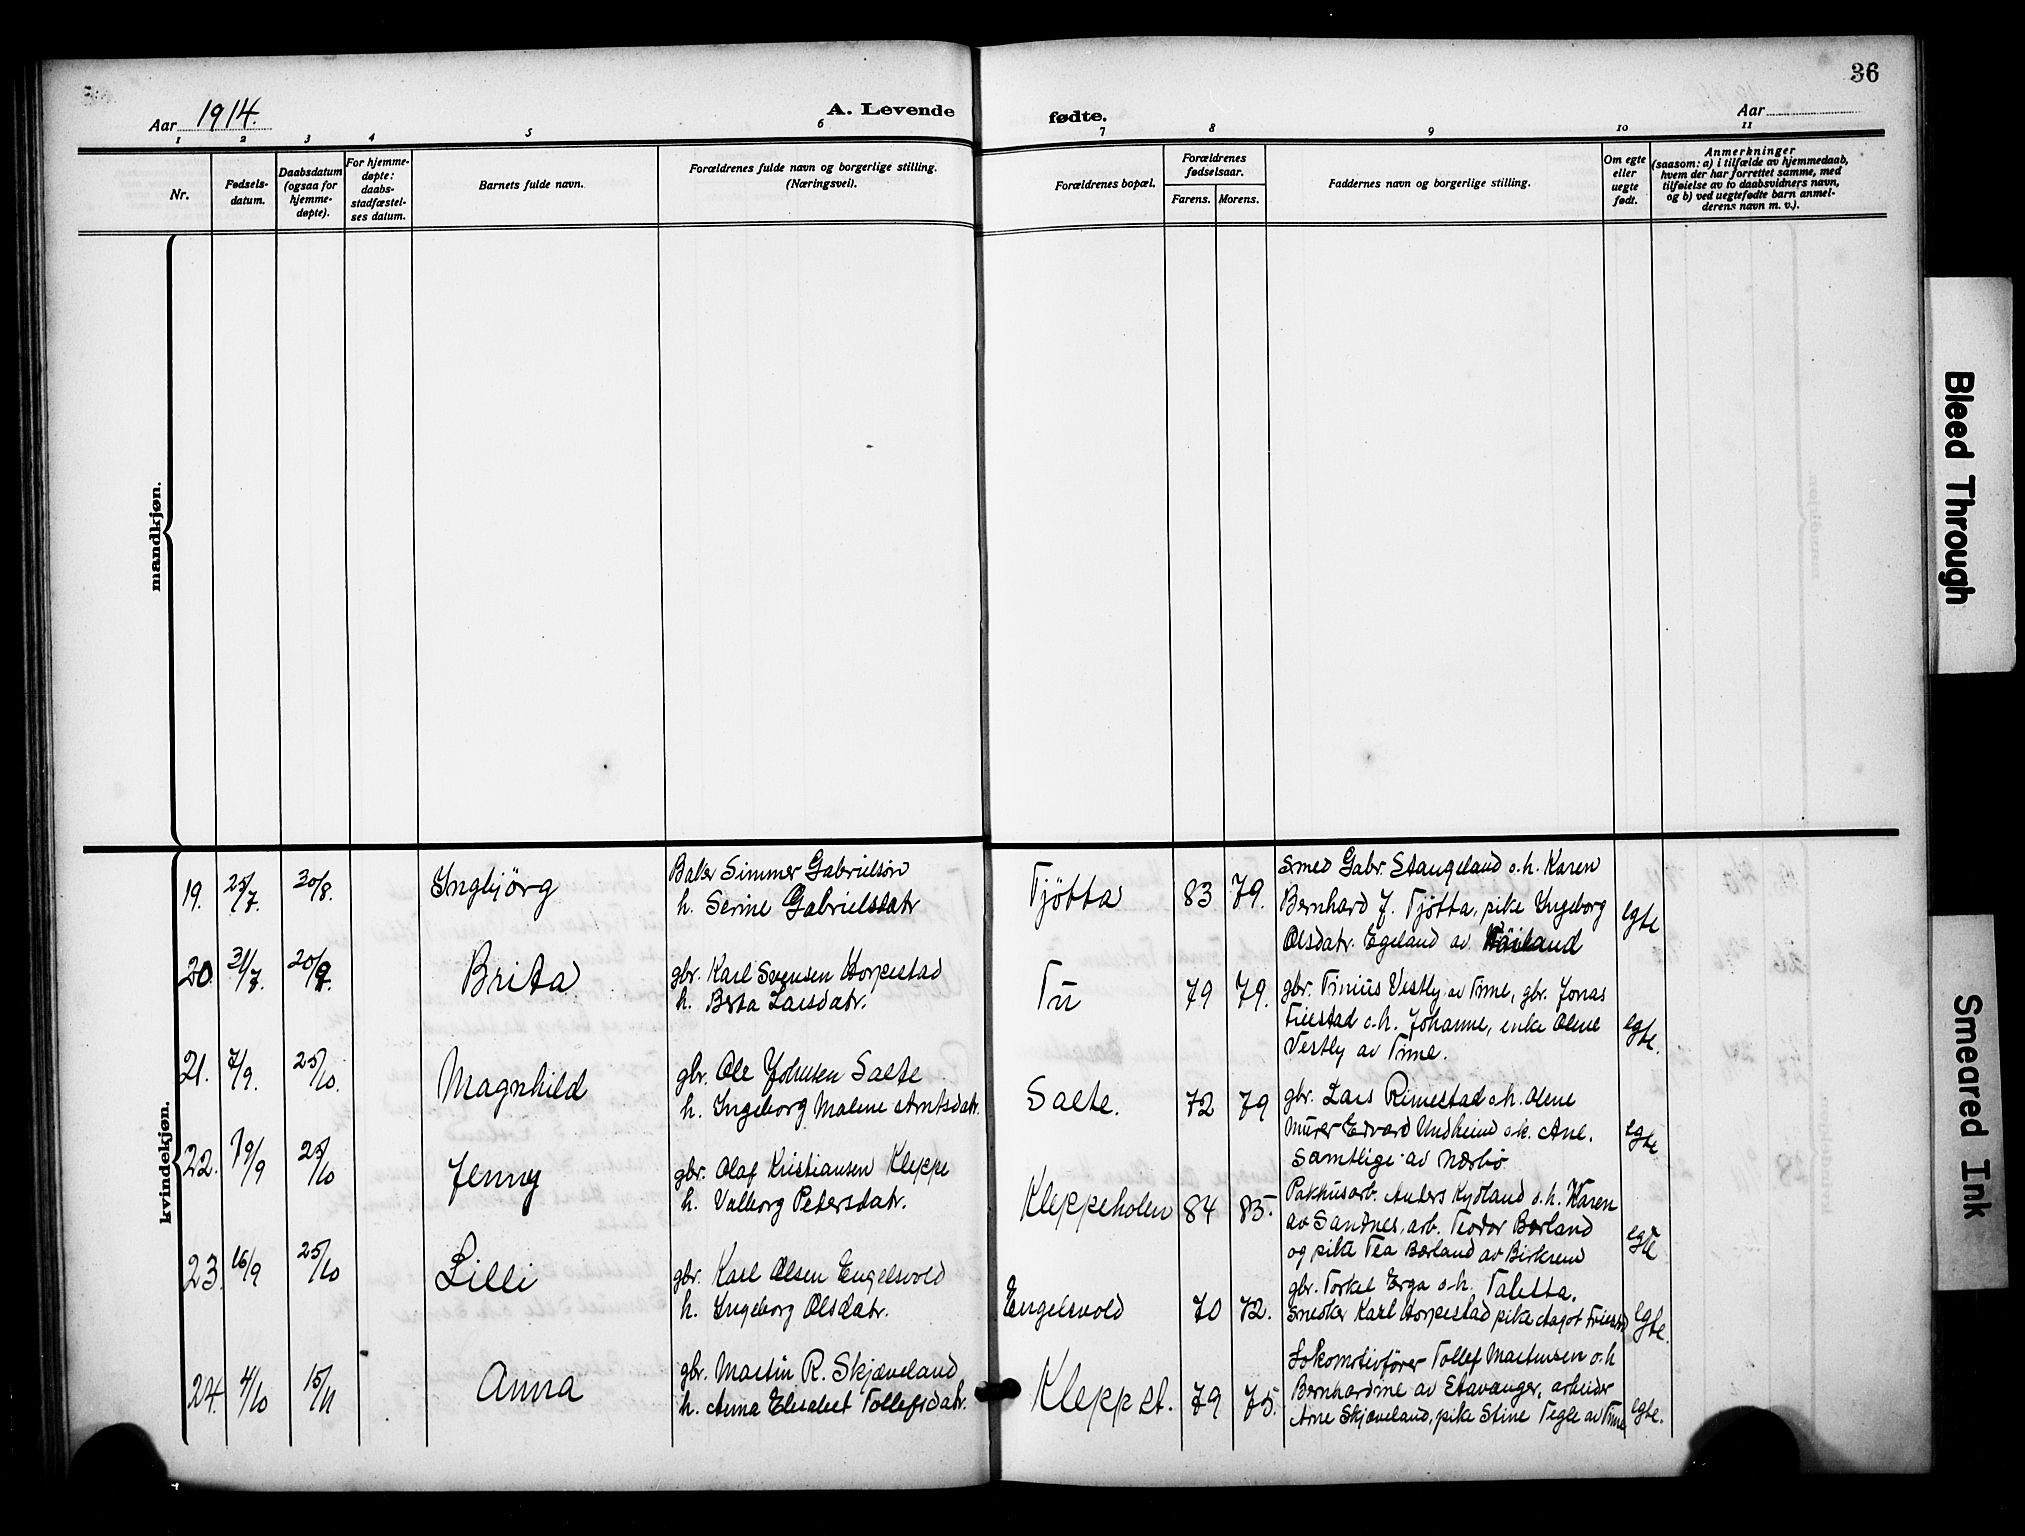 36
Aar 1914.
A. Levende
fødte.
Aar
1 2 3 4 5 6 7 8 9 10 11
Nr.
Fødsels-
datum.
Daabsdatum
(ogsaa for
hjemme-
døpte).
For hjemme-
døpte:
daabs-
stadfæstel-
ses datum.
Barnets fulde navn.
Forældrenes fulde navn og borgerlige stilling.
(Næringsvei).
Forældrenes bopæl.
Forældrenes
fødselsaar.
Farens. Morens.
Faddernes navn og borgerlige stilling.
Om egte
eller
uegte
født.
Anmerkninger
(saasom: a) i tilfælde av hjemmedaab,
hvem der har forrettet samme, med
tilføielse av to daabsvidners navn,
og b) ved uegtefødte barn anmel-
derens navn m. v.).
mandkjøn.
kvindekjøn.
19. 25/7. 30/8. Ingbjörg
Baker Simmer Gabrielsön
h. Serine Gabrielsdatr
Tjötta 83 79.
Smed Gabr. Stangeland o.h. Karen
Bernhard J. Tjötta, pike Ingeborg
Olsdatr. Egeland av
egte
20. 31/7. 20/9. Brita
gbr. Karl Svensen Horpestad
h. Berta Larsdatr.
Tu 79 79.
gbr. Tinius Vestly av Time, gbr. Jonas
Friestad o.h. Johanne, enke Olene
Vestly av Time.
egte.
21. 7/9. 25/10. Magnhild
gbr. Ole Johnsen Salte
h. Ingeborg Malene Arntsdatr.
Salte. 72 79
gbr. Lars Rimestad o.h. Olene
Murer Edvard Undheim o.h. Ane.
Samtlige av Nærbö
egte
22. 19/9 25/10 Jenny
gbr. Olaf Kristiansen Kleppe
h. Valborg Petersdatr.
Kleppeholen 84 85.
Pakhusarb. Anders Kydland o.h. Karen
av Sandnes, arb. Teodor Bærland
og pike Tea Bærland av Birkrem
egte
23. 16/9 25/10 Lilli
gbr. Karl Olsen Engelsvold
h. Ingeborg Olsdatr.
Engelsvold 70 72.
gbr. Torkel Erga o.h. Taletta.
Snedker Karl Horpestad pike Aagot Friestad
egte.
24. 4/10 15/11 Anna
gbr. Martin R. Skjæveland
h. Anna Elisabet Tollefsdatr.
Klepp st. 79 75.
Lokomotivförer Tollef Martinsen o.h
Bernhardine av Stavanger, arbeider
Arne Skjæveland, pike Stine Tegle av Time
egte.
Bleed Through
Smeared Ink